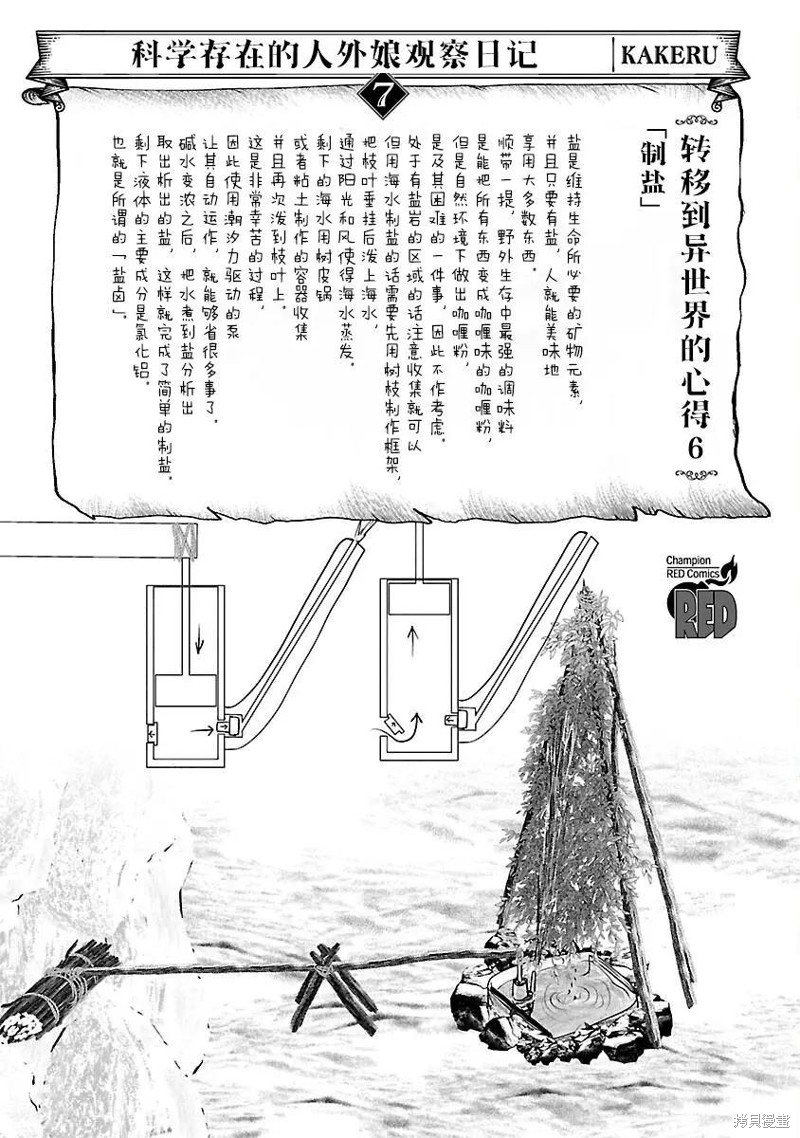 科学存在的人外娘观察日记
KAKERU
7
转移到异世界的心得6
「制盐」
盐是维持生命所必要的矿物元素，
并且只要有盐，人就能美味地
享用大多数东西。
顺带一提，野外生存中最强的调味料
是能把所有东西变成咖喱味的咖喱粉，
但是自然环境下做出咖喱粉，
是及其困难的一件事，因此不作考虑。
处于有盐岩的区域的话注意收集就可以
但用海水制盐的话需要先用树枝制作框架，
把枝叶垂挂后泼上海水，
通过阳光和风使得海水蒸发。
剩下的海水用树皮锅
或者粘土制作的容器收集
并且再次泼到枝叶上。
这是非常幸苦的过程，
因此使用潮汐力驱动的泵
让其自动运作，就能够省很多事了。
碱水变浓之后，把水煮到盐分析出
取出析出的盐，这样就完成了简单的制盐。
剩下液体的主要成分是氯化铝。
也就是所谓的「盐卤」。
Champion
RED Comics
RED
拷貝漫畫